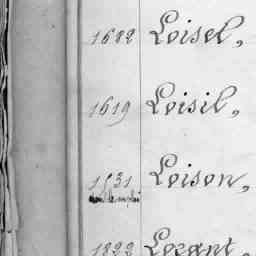 1622 Loisel,
1619 Loisil,
1531 Loison,
1822 Lozant,